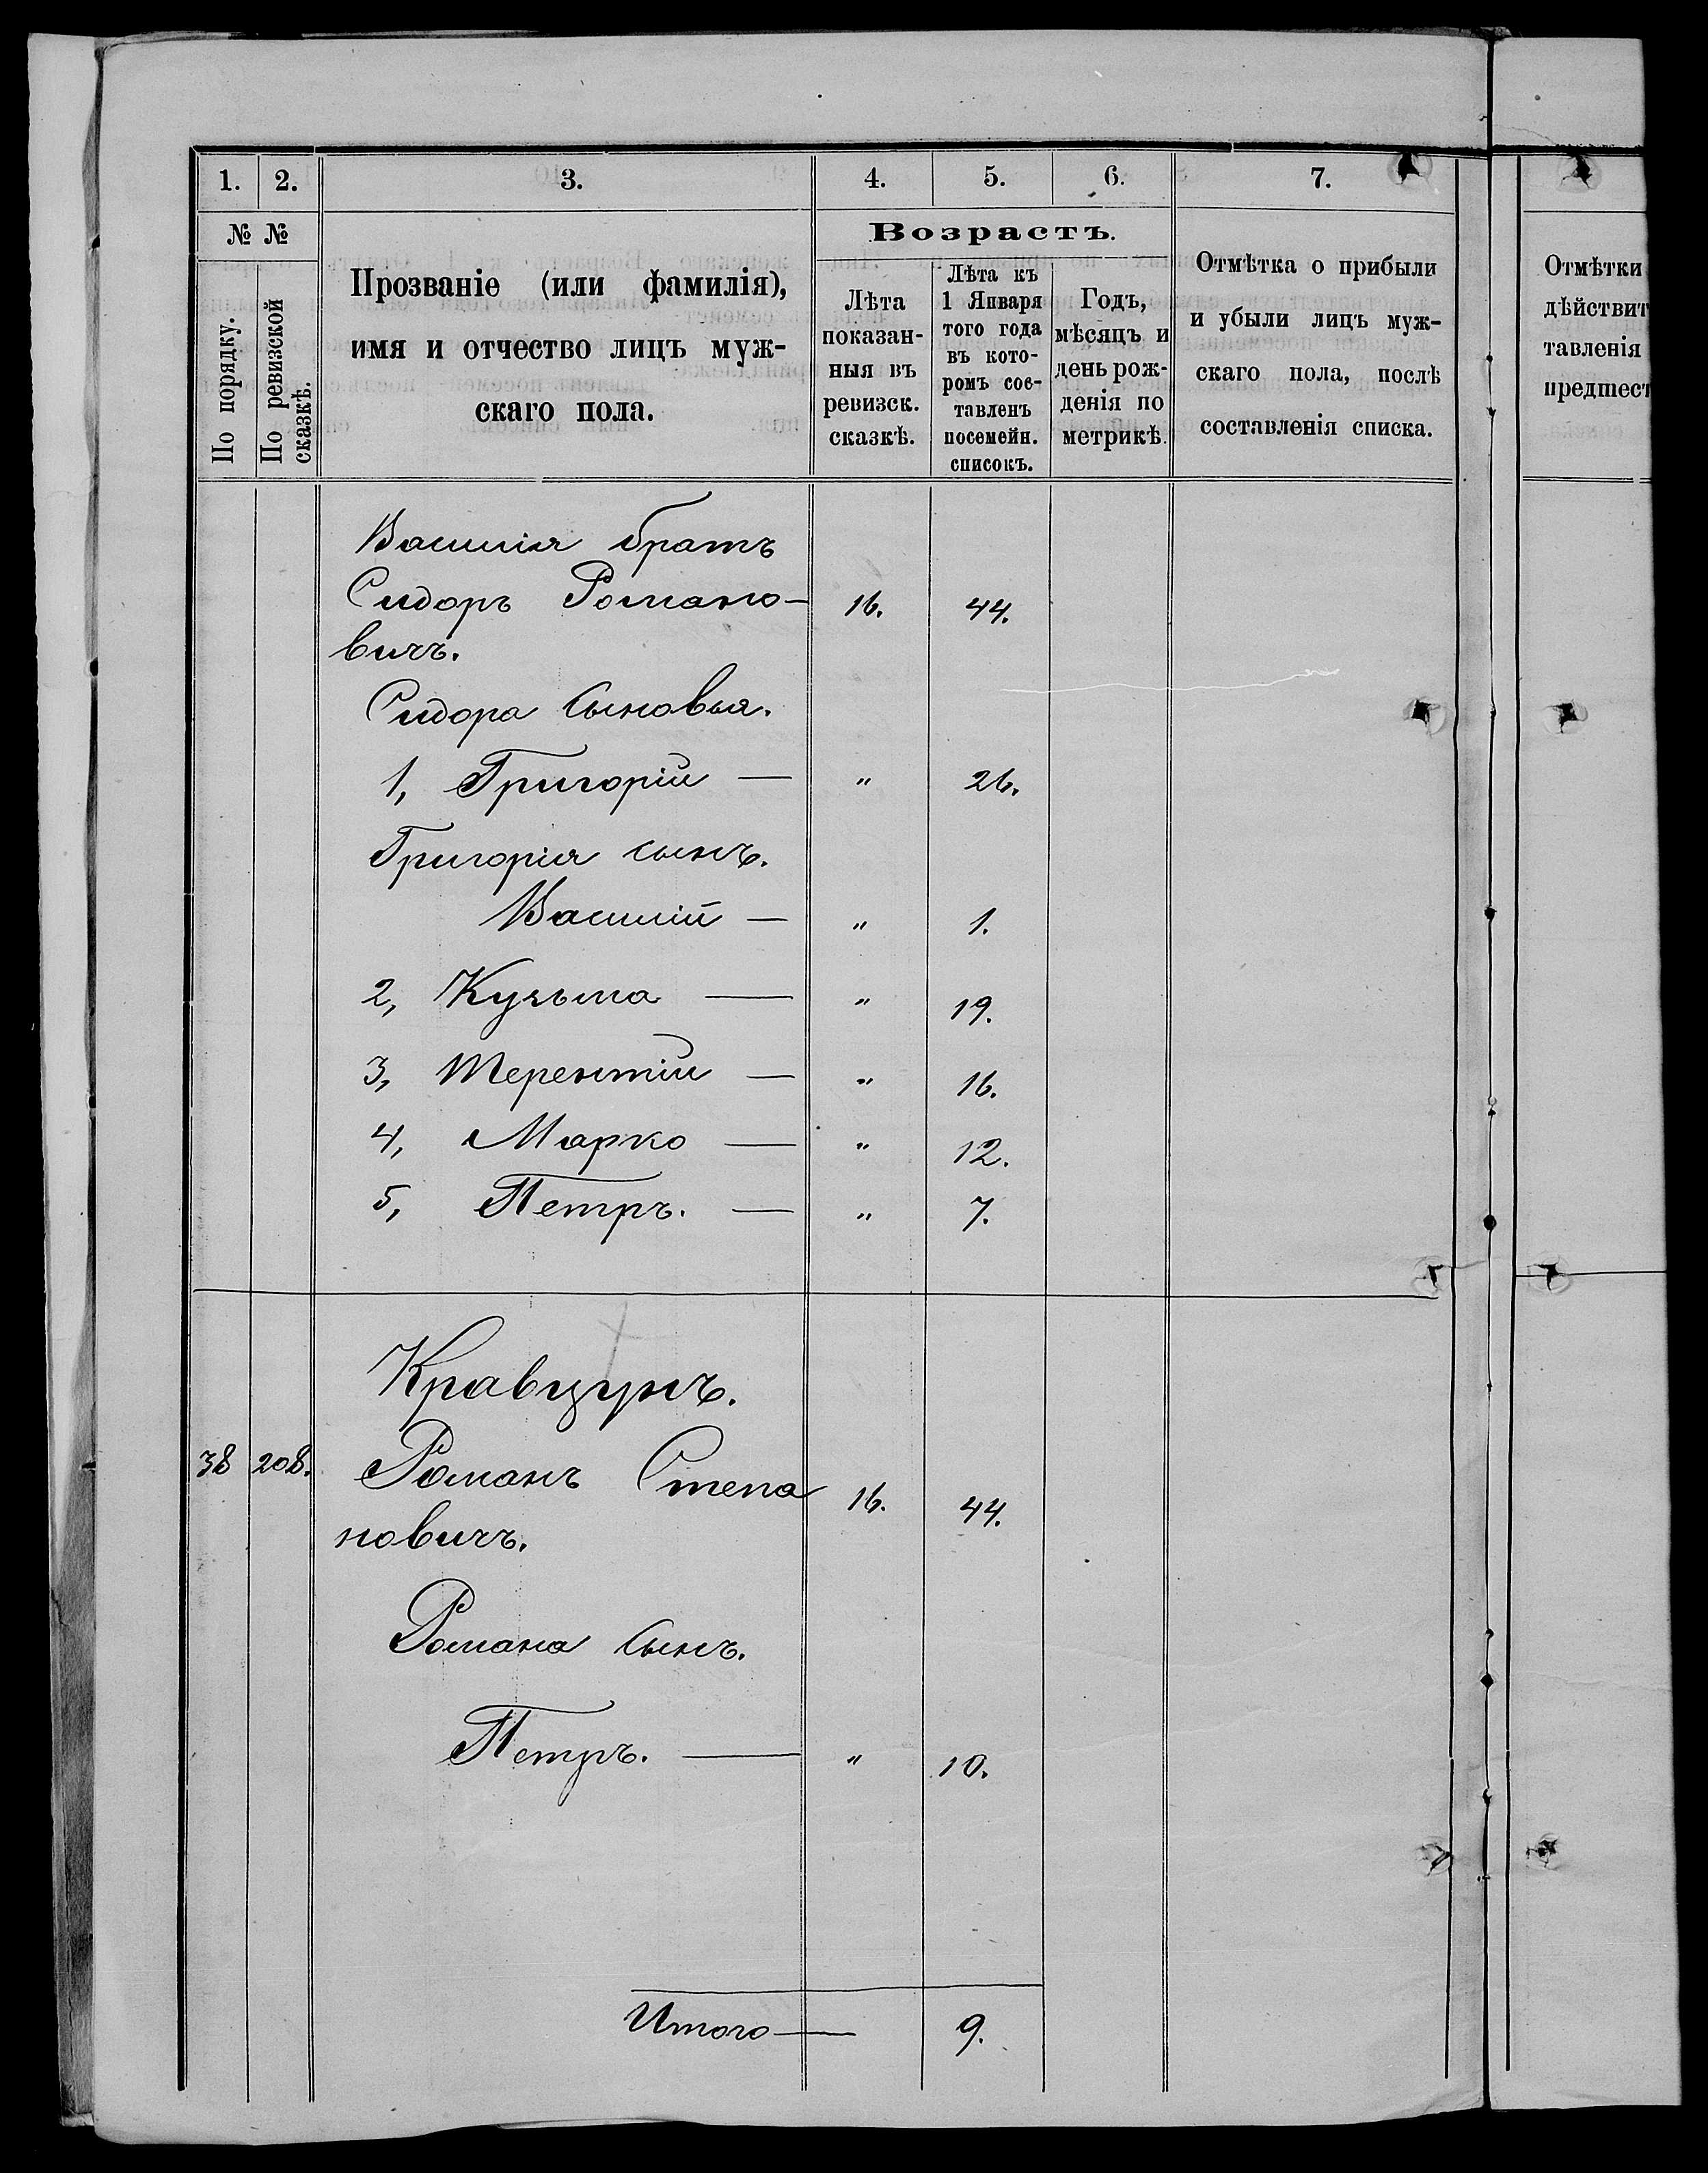 1. 2. 3. 4. 5. 6. 7.
№ №
По порядку.
По ревизской сказкѣ.
Прозваніе (или фамилія),
имя и отчество лицъ муж-
скаго пола.
Возрастъ.
Лѣта
показан-
ныя въ
ревизск.
сказкѣ.
Лѣта къ
1 Января
того года
въ кото-
ромъ сос-
тавленъ
посемейн.
списокъ.
Годъ,
мѣсяцъ и
день рож-
денія по
метрикѣ.
Отмѣтка о прибыли
и убыли лицъ муж-
скаго пола, послѣ
составленія списка.
Отмѣтки
дѣйствит
тавленія
предшест
Василія братъ
Сидоръ Романо- 16. 44.
вичъ.
Сидора сыновья.
1, Григорій — " 26.
Григорія сынъ.
Василій — " 1.
2, Кузьма — " 19.
3, Терентій — " 16.
4, Марко — " 12.
5, Петръ. — " 7.
Кравцунъ.
38 208. Романъ Степа 16. 44.
новичъ.
Романа сынъ.
Петръ. — " 10.
Итого — 9.